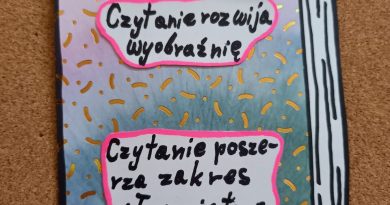 Czytanie rozwija
wyobraźnię
Czytanie posze-
rza zakres